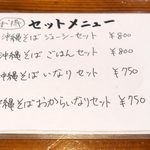 セットメニュー
沖縄そば ジューシーセット ￥800
沖縄そば ごはんセット ￥800
沖縄そば いなりセット ￥750
沖縄そば おからいなりセット ￥750